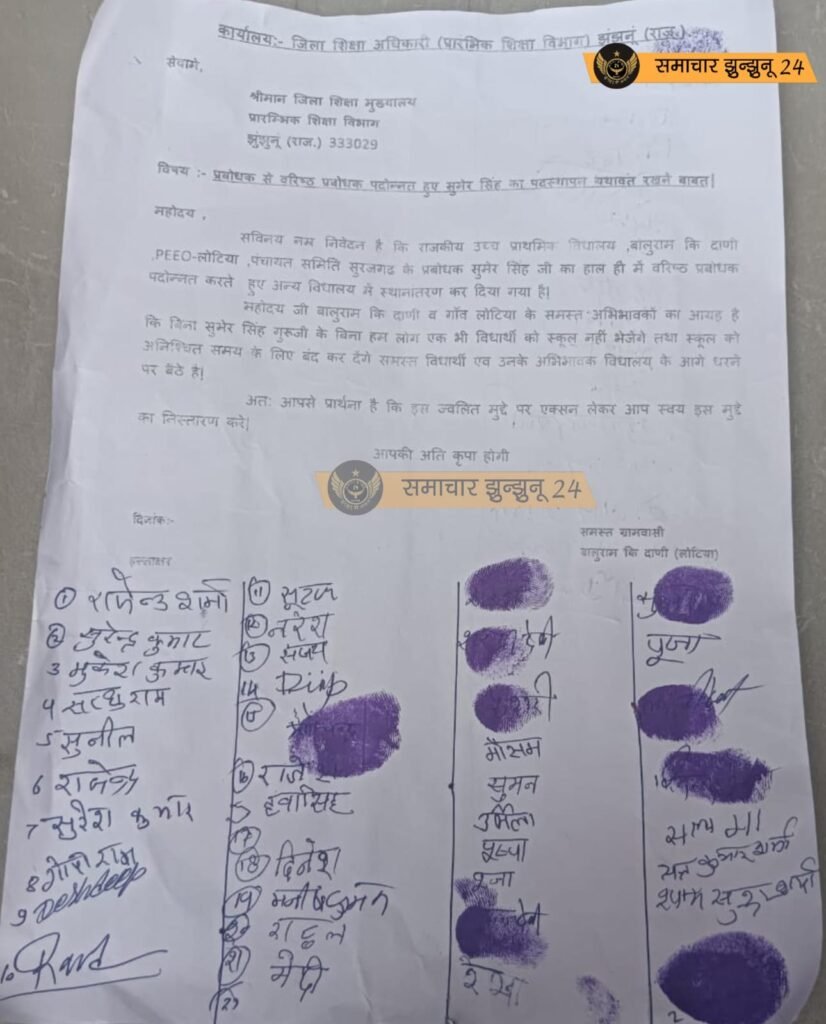 कार्यालय:- जिला शिक्षा अधिकारी (प्रारंभिक शिक्षा विभाग) झुंझुनूं (राज.)
समाचार झुन्झुनू 24
सेवामे,
श्रीमान जिला शिक्षा मुख्यालय
प्रारम्भिक शिक्षा विभाग
झुंझुनूं (राज.) 333029
विषय :- प्रबोधक से वरिष्ठ प्रबोधक पदोन्नत हुए सुमेर सिंह का पदस्थापन यथावत रखने बाबत|
महोदय ,
सविनय नम निवेदन है कि राजकीय उच्च प्राथमिक विधालय ,बालुराम कि ढाणी
,PEEO-लोटिया ,पंचायत समिति सुरजगढ के प्रबोधक सुमेर सिंह जी का हाल ही में वरिष्ठ प्रबोधक
पदोन्नत करते हुए अन्य विधालय में स्थानांतरण कर दिया गया है|
महोदय जी बालुराम कि ढाणी व गाँव लोटिया के समस्त अभिभावकों का आग्रह है
कि बिना सुमेर सिंह गुरूजी के बिना हम लोग एक भी विधार्थी को स्कूल नहीं भेजेगे तथा स्कूल को
अनिश्चित समय के लिए बंद कर देंगे समस्त विधार्थी एव उनके अभिभावक विधालय के आगे धरने
पर बैठे है|
अत: आपसे प्रार्थना है कि इस ज्वलित मुद्दे पर एक्सन लेकर आप स्वय इस मुद्दे
का निस्तारण करे|
आपकी अति कृपा होगी
समाचार झुन्झुनू 24
दिनांक:-
समस्त ग्रामवासी
बालुराम कि ढाणी (लोटिया)
हस्ताक्षर
1 राजेन्द्र शर्मा
2 सुरेन्द्र कुमार
3 मुकेश कुमार
4 सत्थुराम
5 सुनील
6 राजेन्द्र
7 सुरेश कुमार
8 गोपी राम
9 Deshdeep
10
11 सूरज
12 नरेश
13 संजय
14
15
16 राजे
हवासिंह
17
18 दिनेश
19
20 राहुल
21
22
देवी
मौसम
सुमन
उर्मिला
पुष्पा
पूजा
देवी
रेखा
पूजा